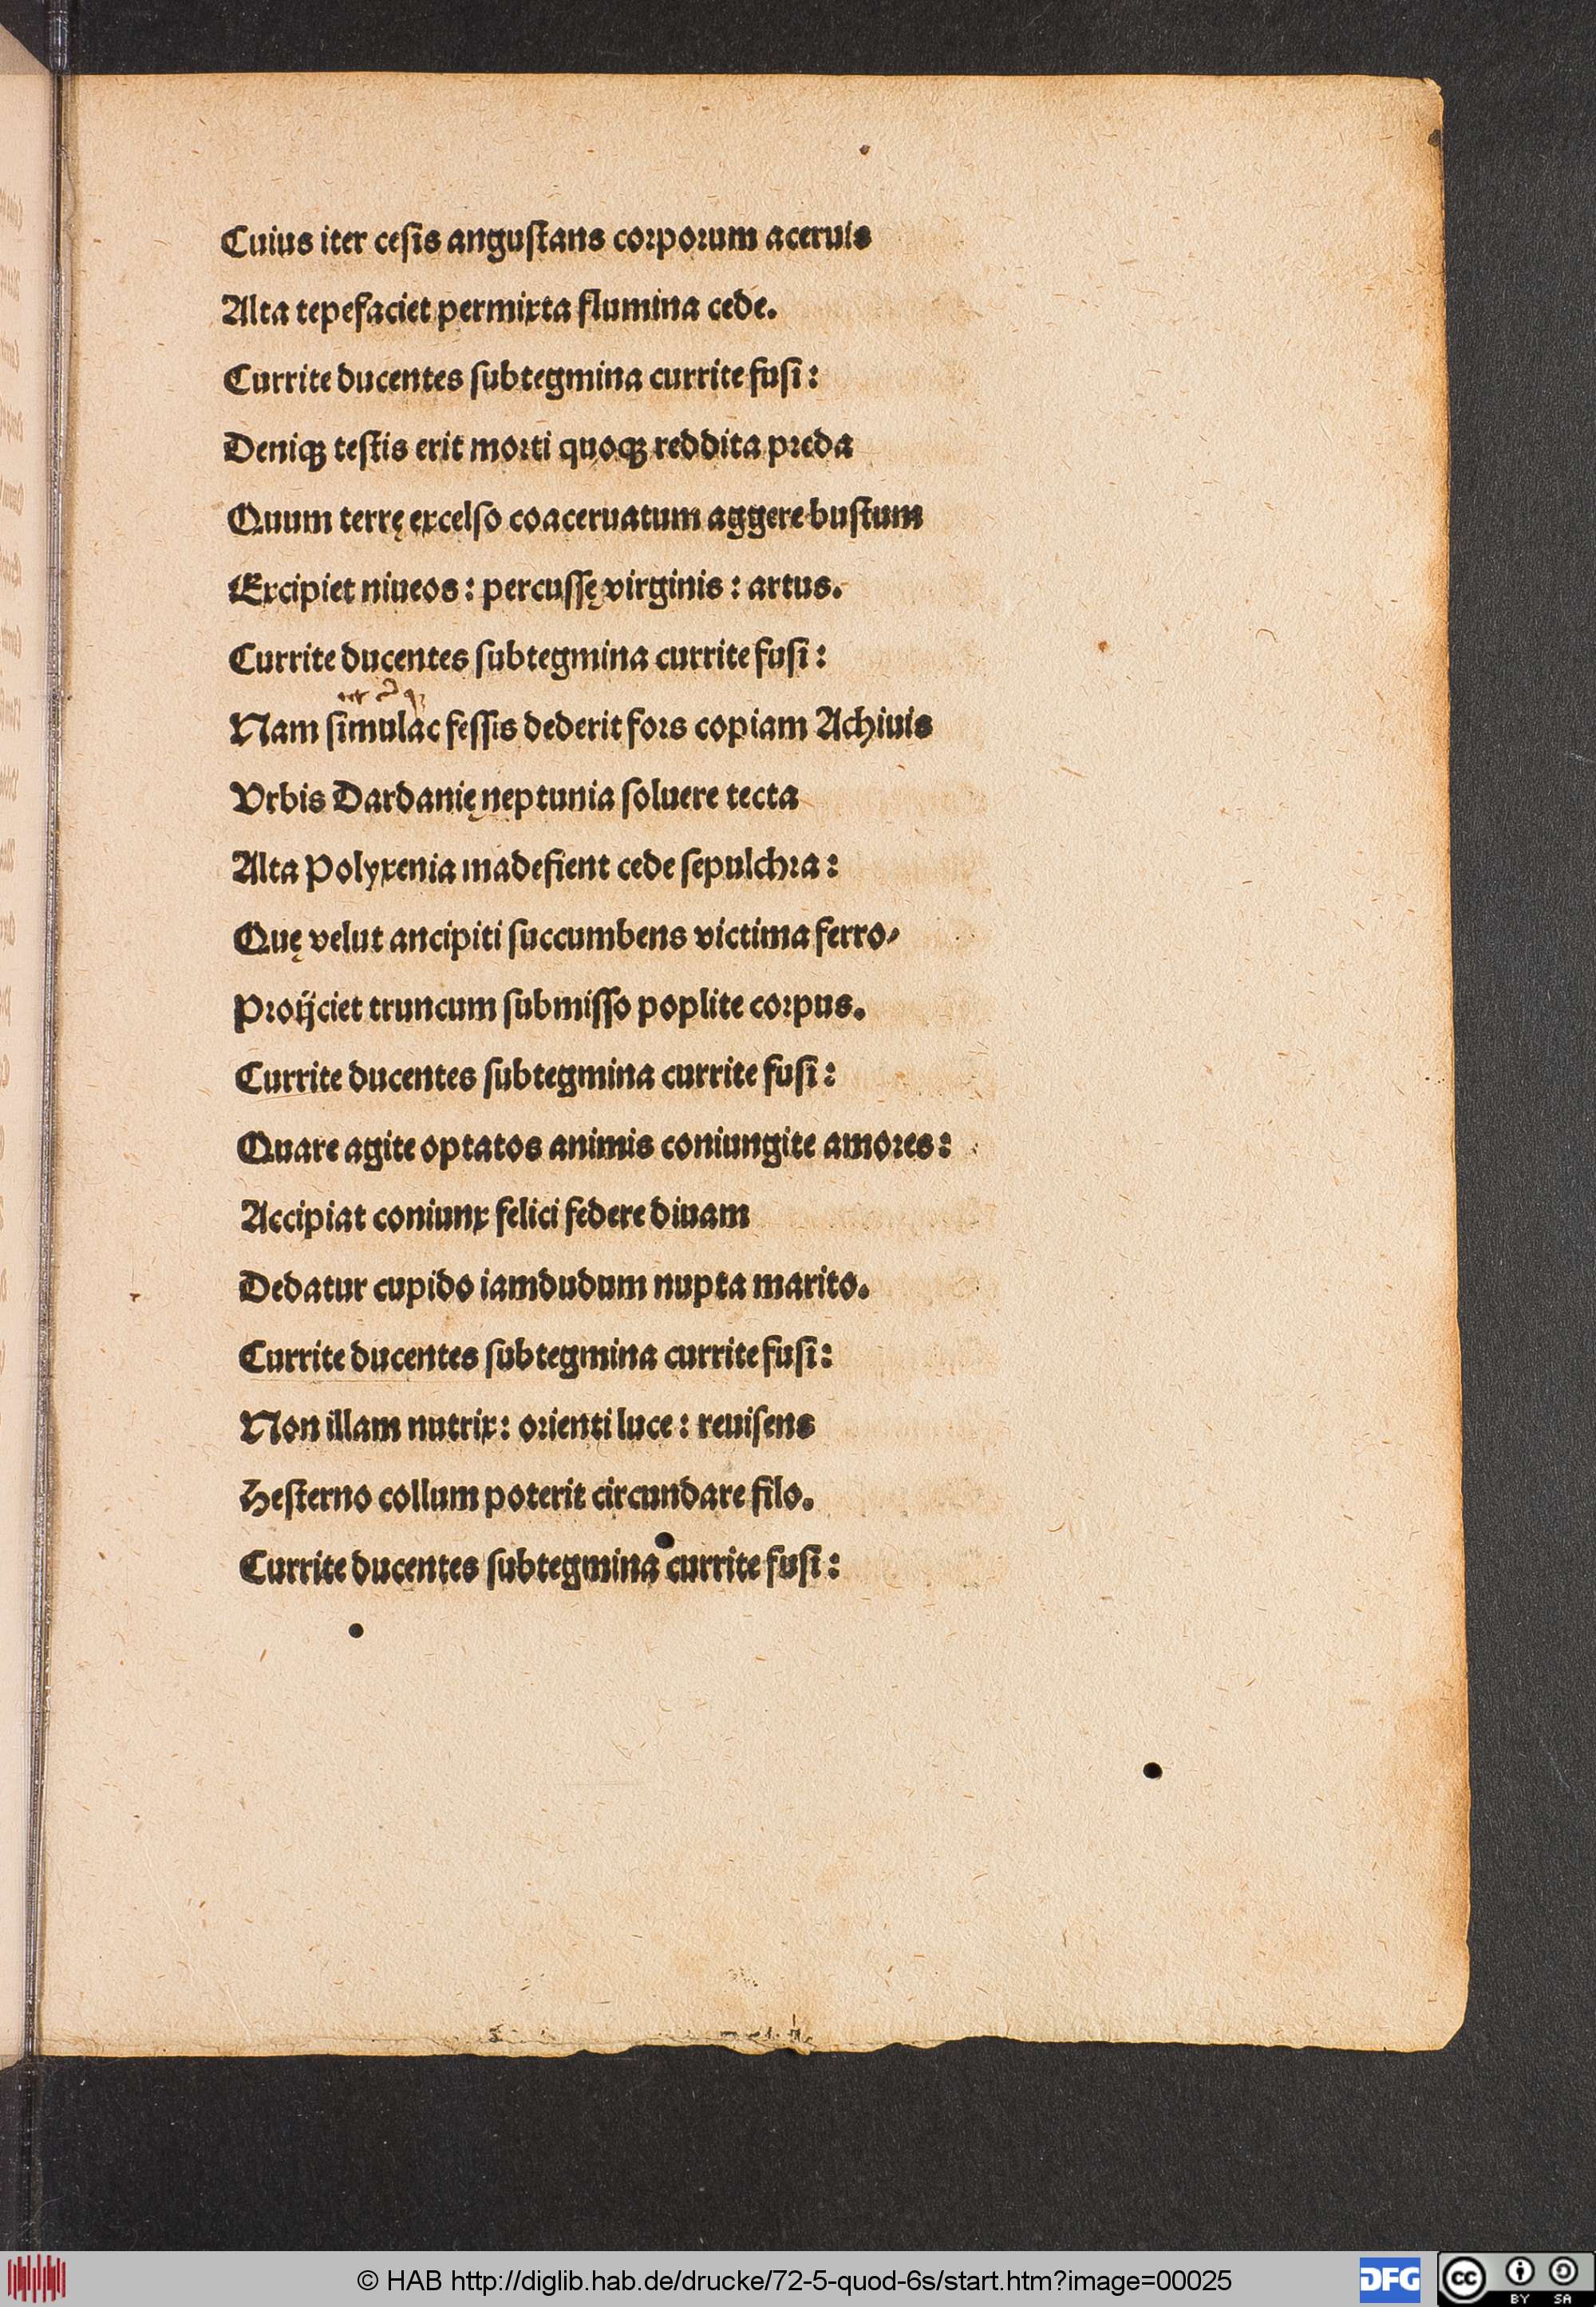 Cuius iter cesis angustans corporum aceruis
Alta tepefaciet permixta flumina cede.
Currite ducentes subtegmina currite fusi:
Deniqꝫ testis erit morti quoqꝫ reddita preda
Quum terrę excelso coaceruatum aggere bustum
Excipiet niueos: percussę virginis: artus.
Currite ducentes subtegmina currite fusi:
Nam simulac fessis dederit fors copiam Achiuis
Vrbis Dardanię neptunia soluere tecta
Alta Polyxenia madefient cede sepulchra:
Quę velut ancipiti succumbens victima ferro,
Proijciet truncum submisso poplite corpus.
Currite ducentes subtegmina currite fusi:
Quare agite optatos animis coniungite amores:
Accipiat coniunx felici federe diuam
Dedatur cupido iamdudum nupta marito.
Currite ducentes subtegmina currite fusi:
Non illam nutrix: orienti luce: reuisens
Hesterno collum poterit circundare filo.
Currite ducentes subtegmina currite fusi:
© HAB http://diglib.hab.de/drucke/72-5-quod-6s/start.htm?image=00025
DFG
cc BY SA